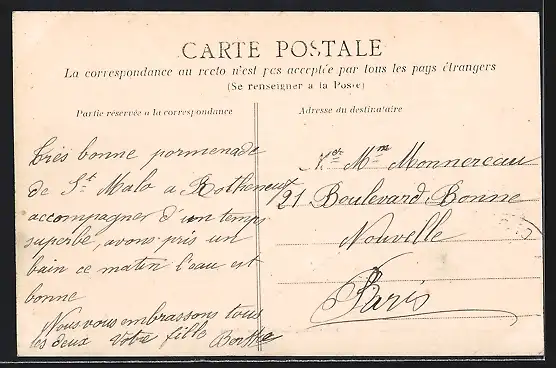 CARTE POSTALE
La correspondance au recto n'est pas acceptée par tous les pays étrangers
(Se renseigner à la Poste)
Partie réservée à la correspondance
Adresse du destinataire
très bonne pormenade
de St Malo a Rotheneuf
accompagner d'un temps
superbe, avons pris un
bain ce matin l'eau est
bonne
Nous vous embrassons tous
les deux Votre fille Berthe
Mr Mm Monnereau
21 Boulevard Bonne
Nouvelle
Paris